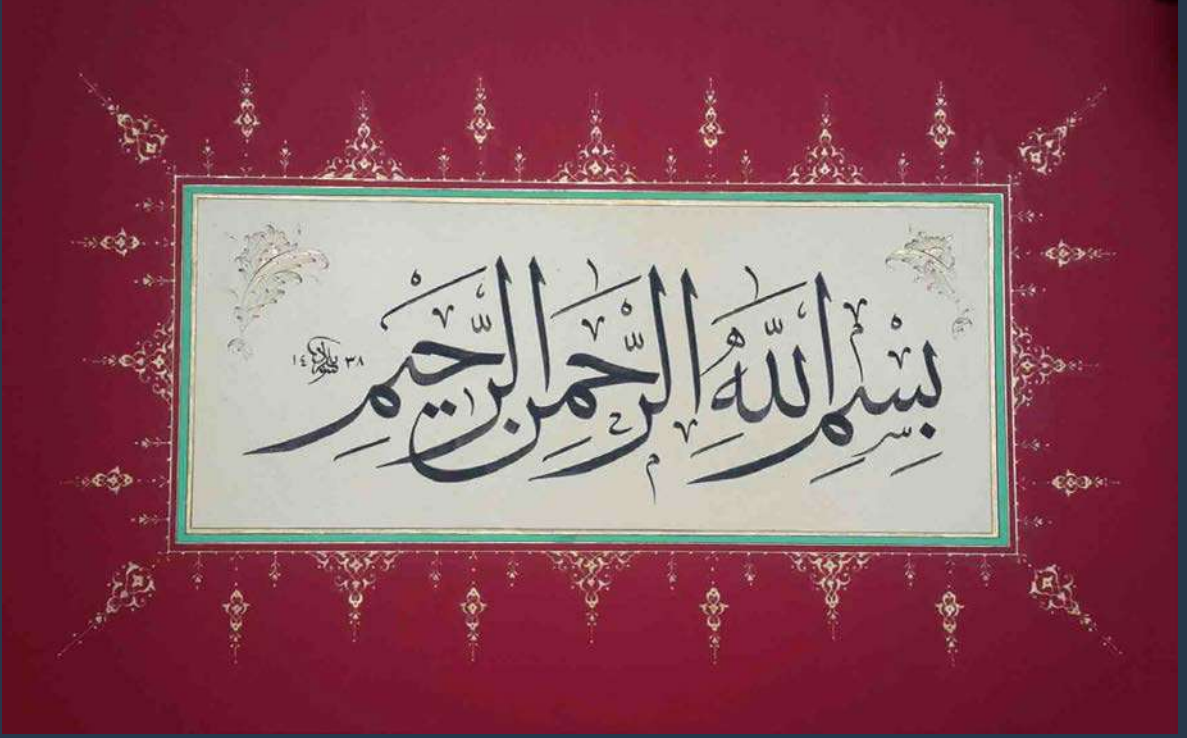 بِسْمِ اللهِ الرَّحْمٰنِ الرَّحِيمِ
١٤٣٨